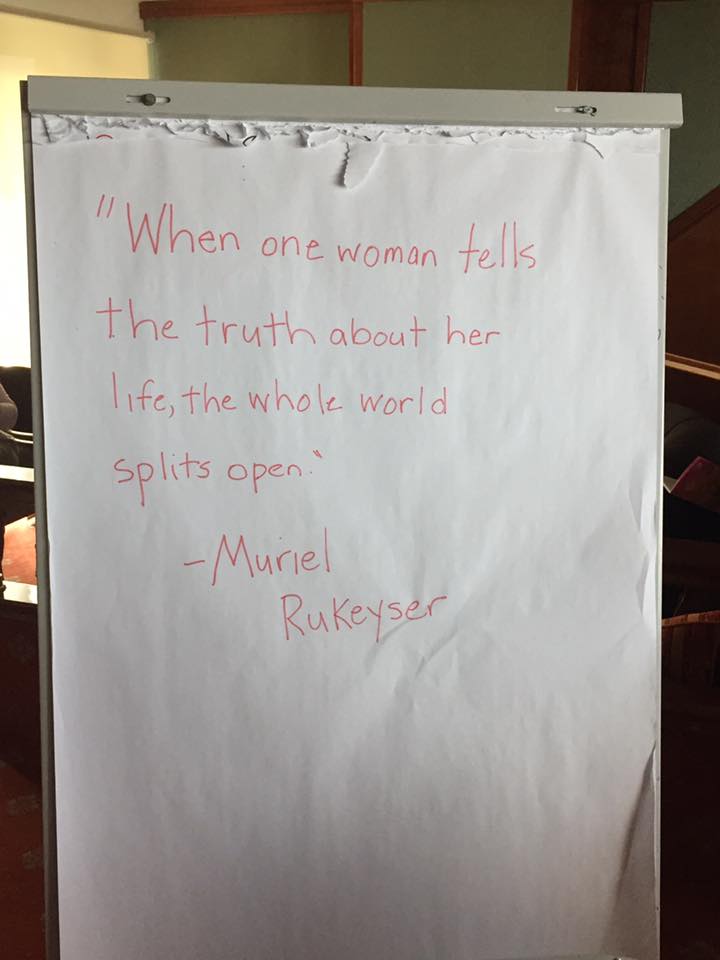 "When one woman tells
the truth about her
life, the whole world
splits open."
-Muriel
Rukeyser